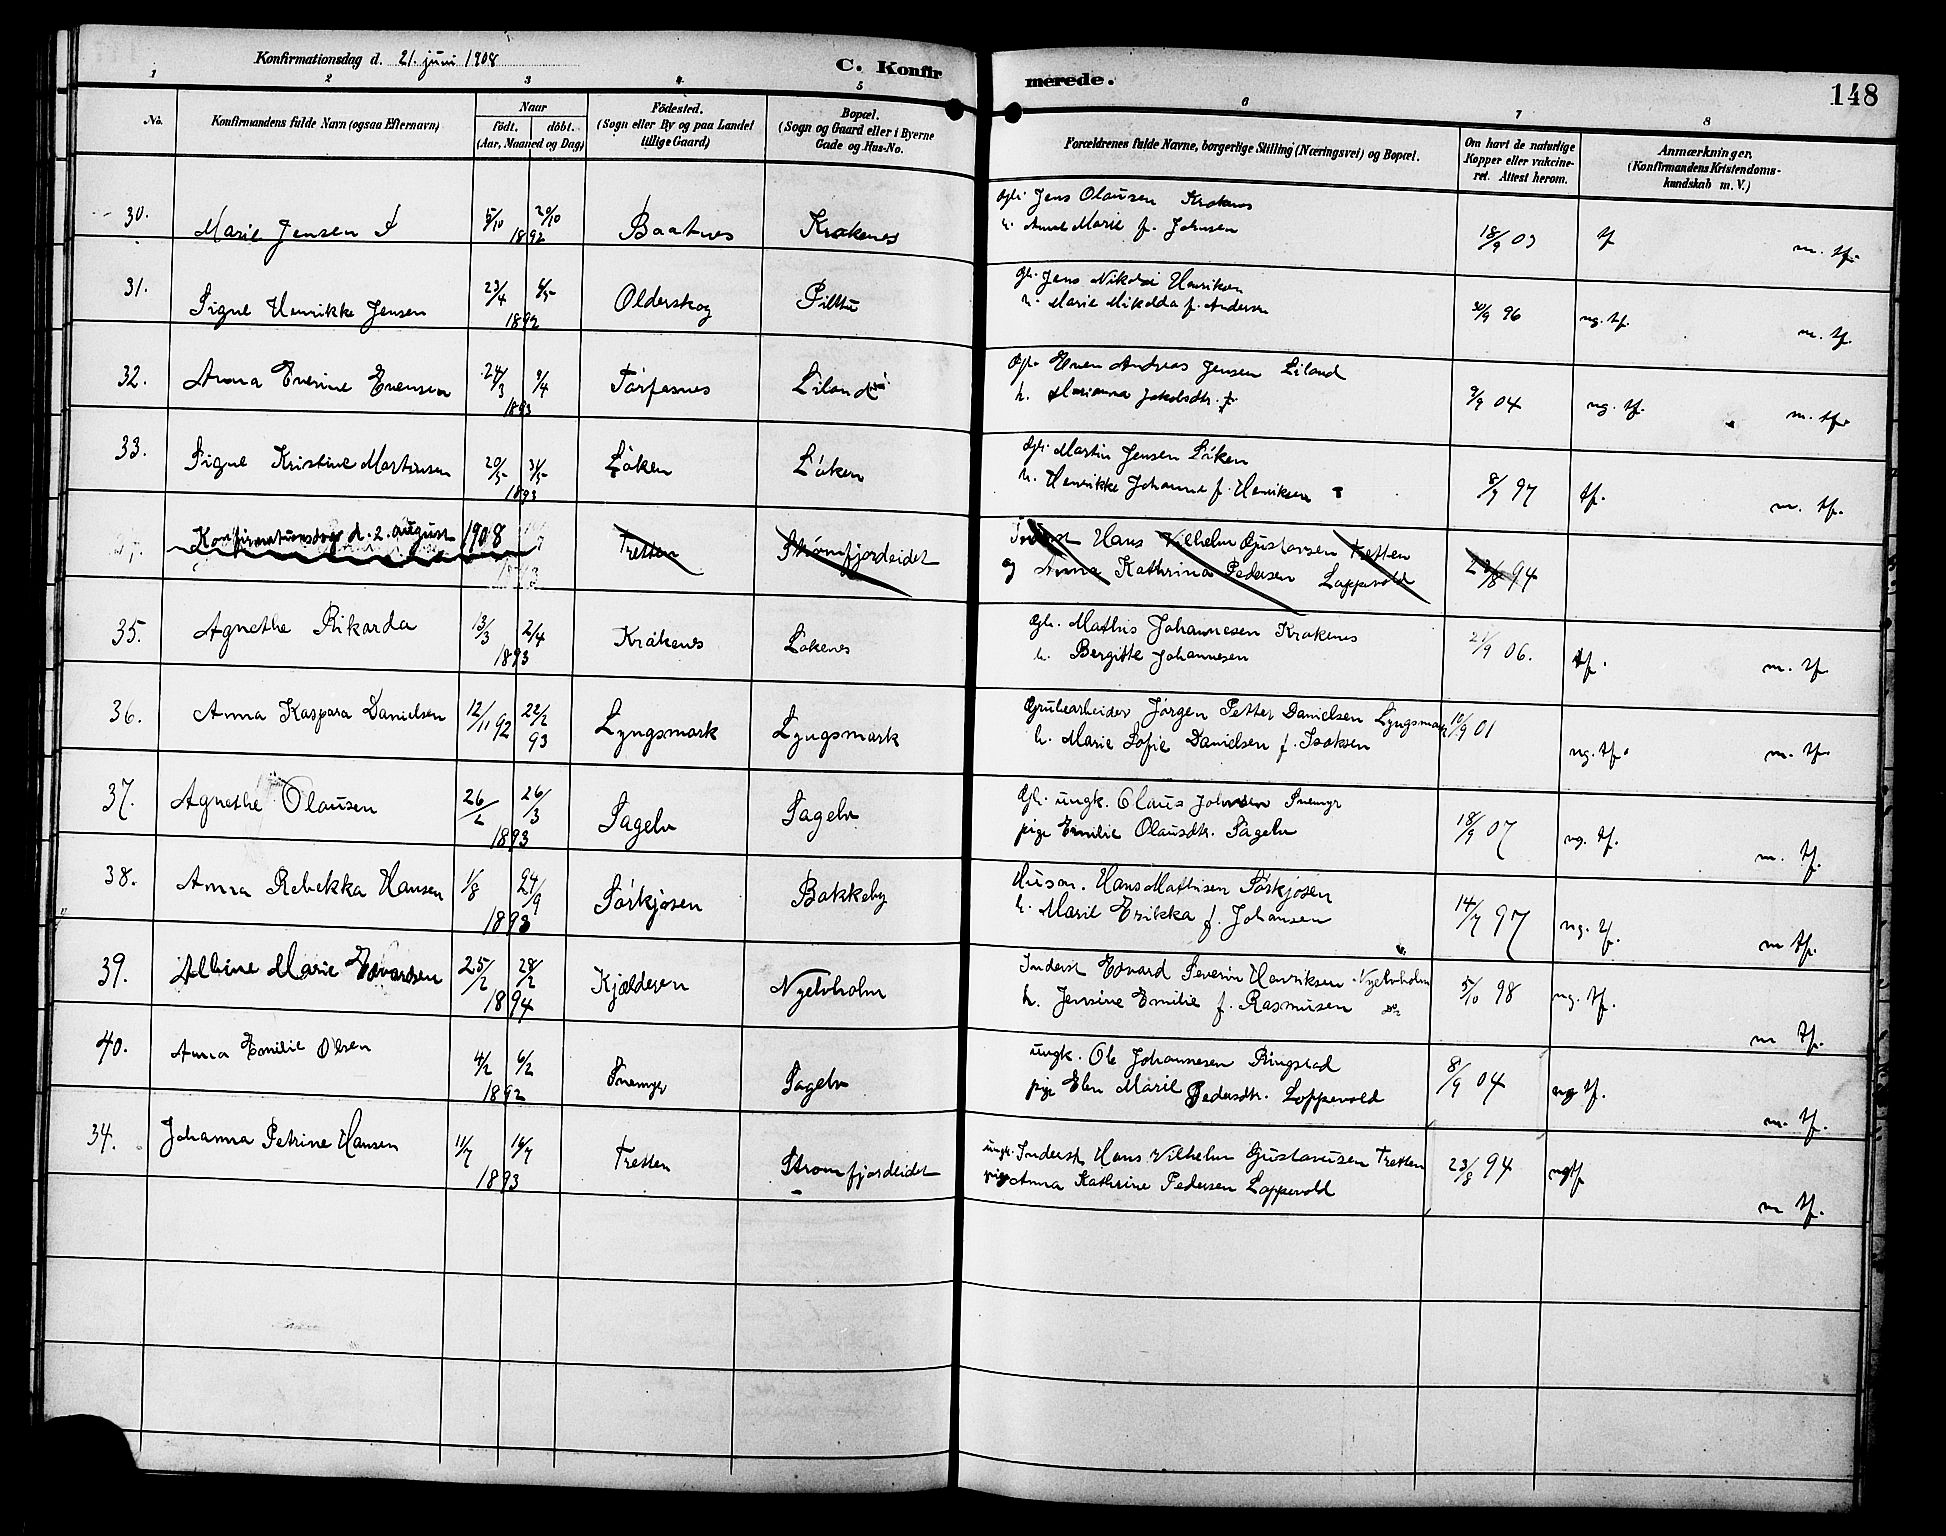 Konfirmationsdag d. 21. juni 1908
C. Konfirmerede.
148
1 2 3 4 5 6 7 8
No.
Konfirmandens fulde Navn (ogsaa Efternavn)
Naar
födt. döbt.
(Aar, Maaned og Dag)
Födested.
(Sogn eller By og paa Landet
tillige Gaard)
Bopæl.
(Sogn og Gaard eller i Byerne
Gade og Hus-No.
Forældrenes fulde Navne, borgerlige Stilling (Næringsvei) og Bopæl.
Om havt de naturlige
Kopper eller vakcine-
ret. Attest herom.
Anmærkninger.
(Konfirmandens Kristendoms-
kundskab m. V.)
30. Marie Jensen 5/10 20/10 1892 Baatnes Krakenes
Jens Olausen Krakenes
h. Anne Marie f. Johnsen
18/9 03 tf m. tf.
31. Signe Henrikke Jensen 23/4 1892 Olderskog
Jens Nikolai Henriksen
h. Marie f. Andersen
96 ng. tf. m. tf.
32. Anna Everine Evensen 24/3 9/4 1893 Torfasnes Liland
Even Andreas Jensen Liland
h. Marianna Jakobsdtr.
9/9 04 ng. tf. m. tf.
33. Signe Kristine Martinsen 20/5 31/5 1893 Löken Löken
Martin Jensen Löken
h. Henrikke Johanne f. Henriksen
8/9 97 tf. m. tf.
Konfirmationsdag d. 2. august 1908 Tretten Strømfjordeidet
Inderst Hans Vilhelm Gustavsen Tretten
og Anna Kathrina Pedersen Loppevold
23/8 94
35. Agnethe Rikarda 13/3 2/4 1893 Krakenes Lökenes
Gbr. Mathis Johannesen Krakenes
h. Bergitte Johannesen
21/9 06. tf. m. tf.
36. Anna Kaspara Danielsen 12/11 92 22/2 93 Lyngsmark Lyngsmark
Grubearbeider Jörgen Petter Danielsen Lyngsmark
h. Marie Sofie Danielsen f. Isaksen
10/9 01 ng. tf. m. tf.
37. Agnethe Olausen 26/2 26/3 1893 Sagelv Sagelv
ungk. Olaus Johnsen Snemyr
pige Emilie Olausdtr. Sagelv
18/9 07 ng. tf. m. tf.
38. Anna Rebekka Hansen 1/8 24/9 1893 Sörkjosen Bakkeby
Husm. Hans Mathisen Sörkjosen
h. Marie Erikka f. Johansen
14/7 97 ng. tf. m tf.
39. Albine Marie Edvardsen 25/2 28/2 1894 Kjælderen Nyelvholm
Inderst Edvard Severin Henriksen Nyelvholm
h. Jensine Emilie f. Rasmusen do
5/10 98 ng. tf. m tf.
40. Anna Emilie Olsen 4/2 6/2 1892 Snemyr Sagelv
ungk. Ole Johannesen Ringstad
pige Elen Marie Pedersdtr. Loppevold
8/9 04 ng tf. m. tf.
34. Johanna Petrine Hansen 11/7 16/7 1893 Tretten Strømfjordeidet
ungk. Inderst Hans Vilhelm Gustavsen Tretten
pige Anna Kathrine Pedersen Loppevold
23/8 94 ng tf m tf.